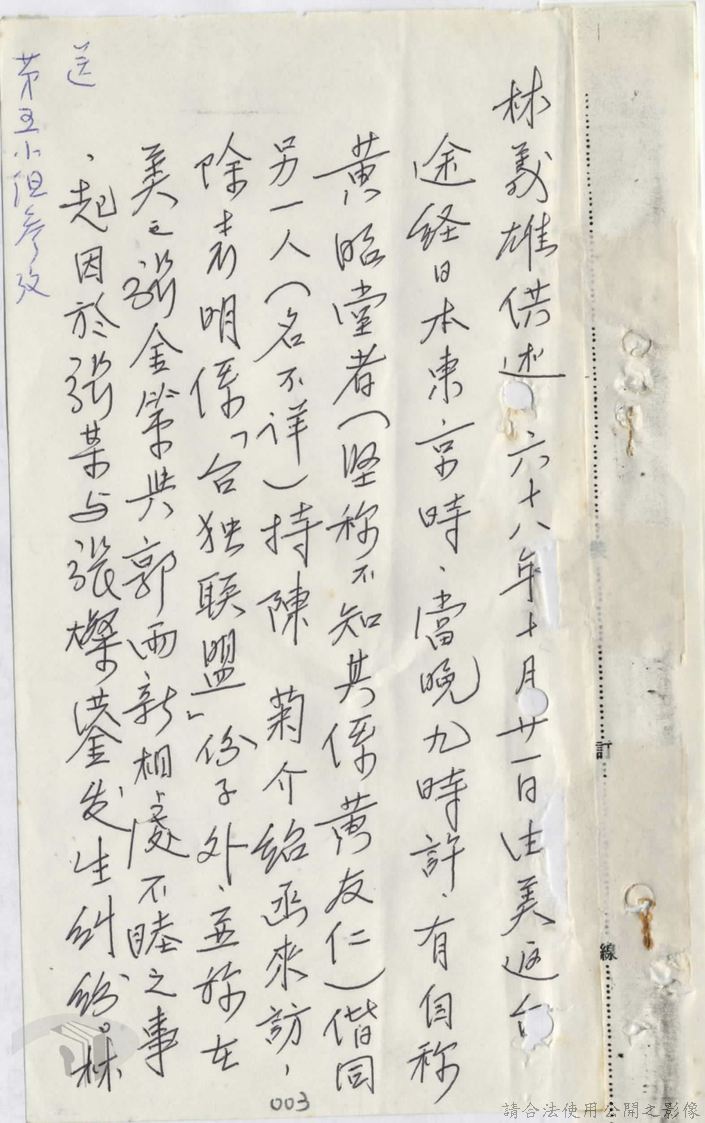 林義雄供述 六十八年十月廿一日由美返台
途経日本東京時、當晚九時許、有自称
黄昭堂者(坚称不知其係黄友仁)偕同
另一人(名不详)持陳 菊介紹函來訪,
除表明係「台独联盟」份子外、並称在
美之張金策與郭雨新相處不睦之事
、起因於張某与張燦鍙发生糾紛。林
送
第五小组参攷
訂
線
003
請合法使用公開之影像